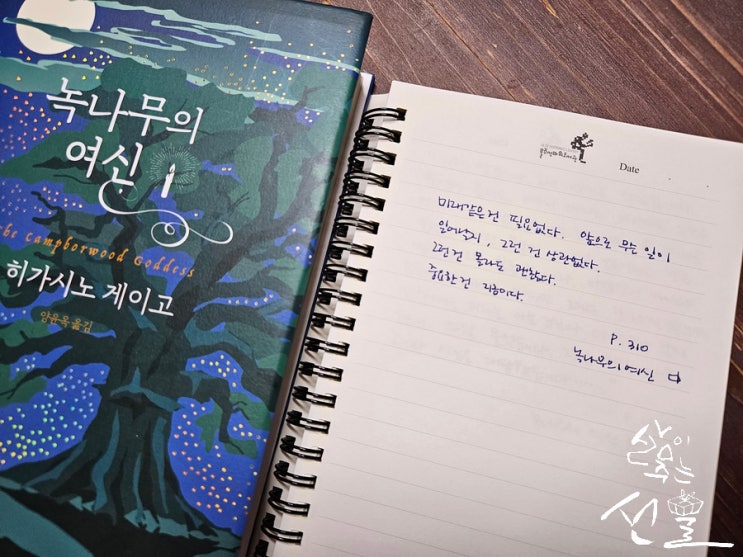 녹나무의
여신
The Camphorwood Goddess
히가시노 게이고
양윤옥 옮김
Date
미래같은건 필요없다. 앞으로 무슨 일이
일어날지, 그런 건 상관없다.
그런건 몰라도 괜찮다.
중요한건 지금이다.
P. 310
녹나무의 여신
삶이
주는
선물